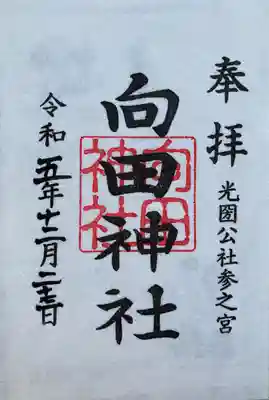 奉拝
光圀公社参之宮
向田神社
向田神社
令和五年十二月二十三日